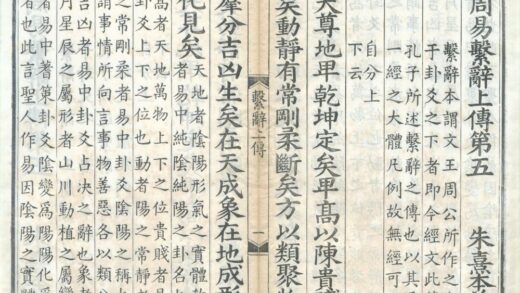 周易繫辭上傳第五 朱熹本
繫辭本謂文王周公所作之
于卦爻之下者即今經文此
孔子所述繫辭之傳也以其
一經之大體凡例故無經可
自分上
下云
天尊地卑乾坤定矣卑高以陳貴
矣動靜有常剛柔斷矣方以類聚
繫辭上傳 一
羣分吉凶生矣在天成象在地成形
化見矣 天地者陰陽形氣之實體
者易中純陰純陽之卦名
高者天地萬物上下之位貴賤者易
卦爻上下之位也動者陽之常靜者
之常剛柔者易中卦爻陰陽之稱
謂事情所向言事物善惡各以類
吉凶者易中卦爻占決之辭也象者
月星辰之屬形者山川動植之屬變
者易中蓍策卦爻陰變為陽陽化
者也此言聖人作易因陰陽之實